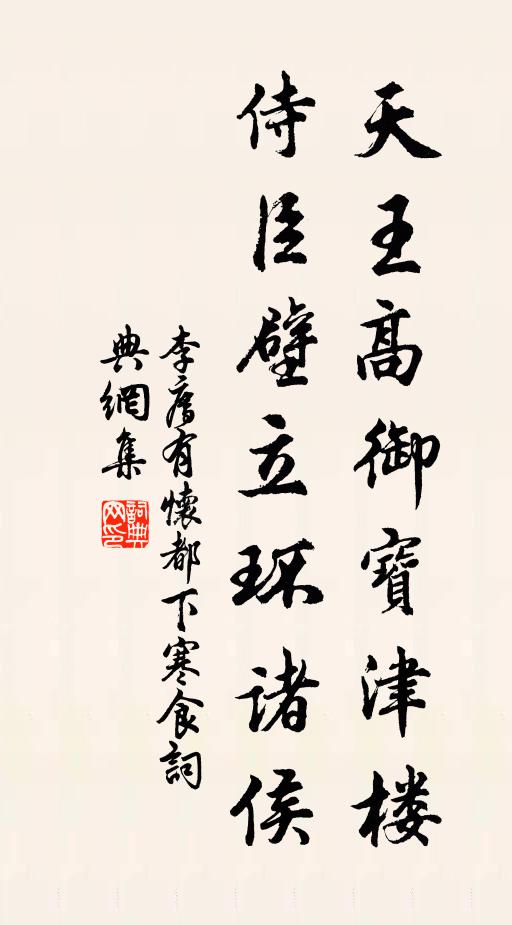 天王高御寶津楼
侍臣壁立环诸侯
李廌有懷都下寒食詞
典網集
詞典網印